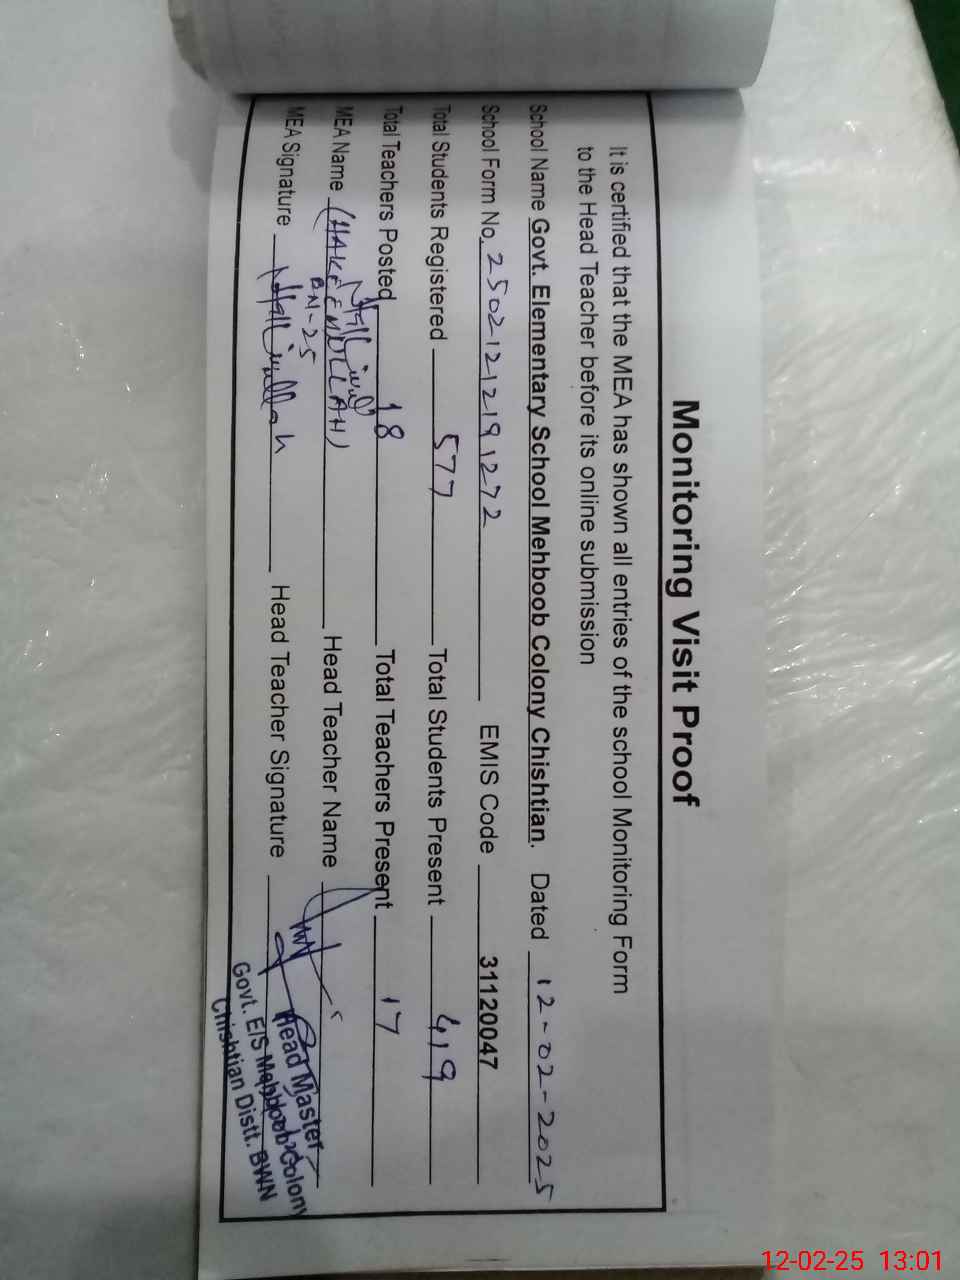 Monitoring Visit Proof
It is certified that the MEA has shown all entries of the school Monitoring Form
to the Head Teacher before its online submission
School Name Govt. Elementary School Mehboob Colony Chishtian. Dated 12-02-2025
School Form No. 25021212191272 EMIS Code 31120047
Total Students Registered 577 Total Students Present 419
Total Teachers Posted 18 Total Teachers Present 17
MEA Name Head Teacher Name
BN-25
MEA Signature Head Teacher Signature
Head Master
Govt. E/S Mehboob Colony
Chishtian Distt. BWN
12-02-25 13:01